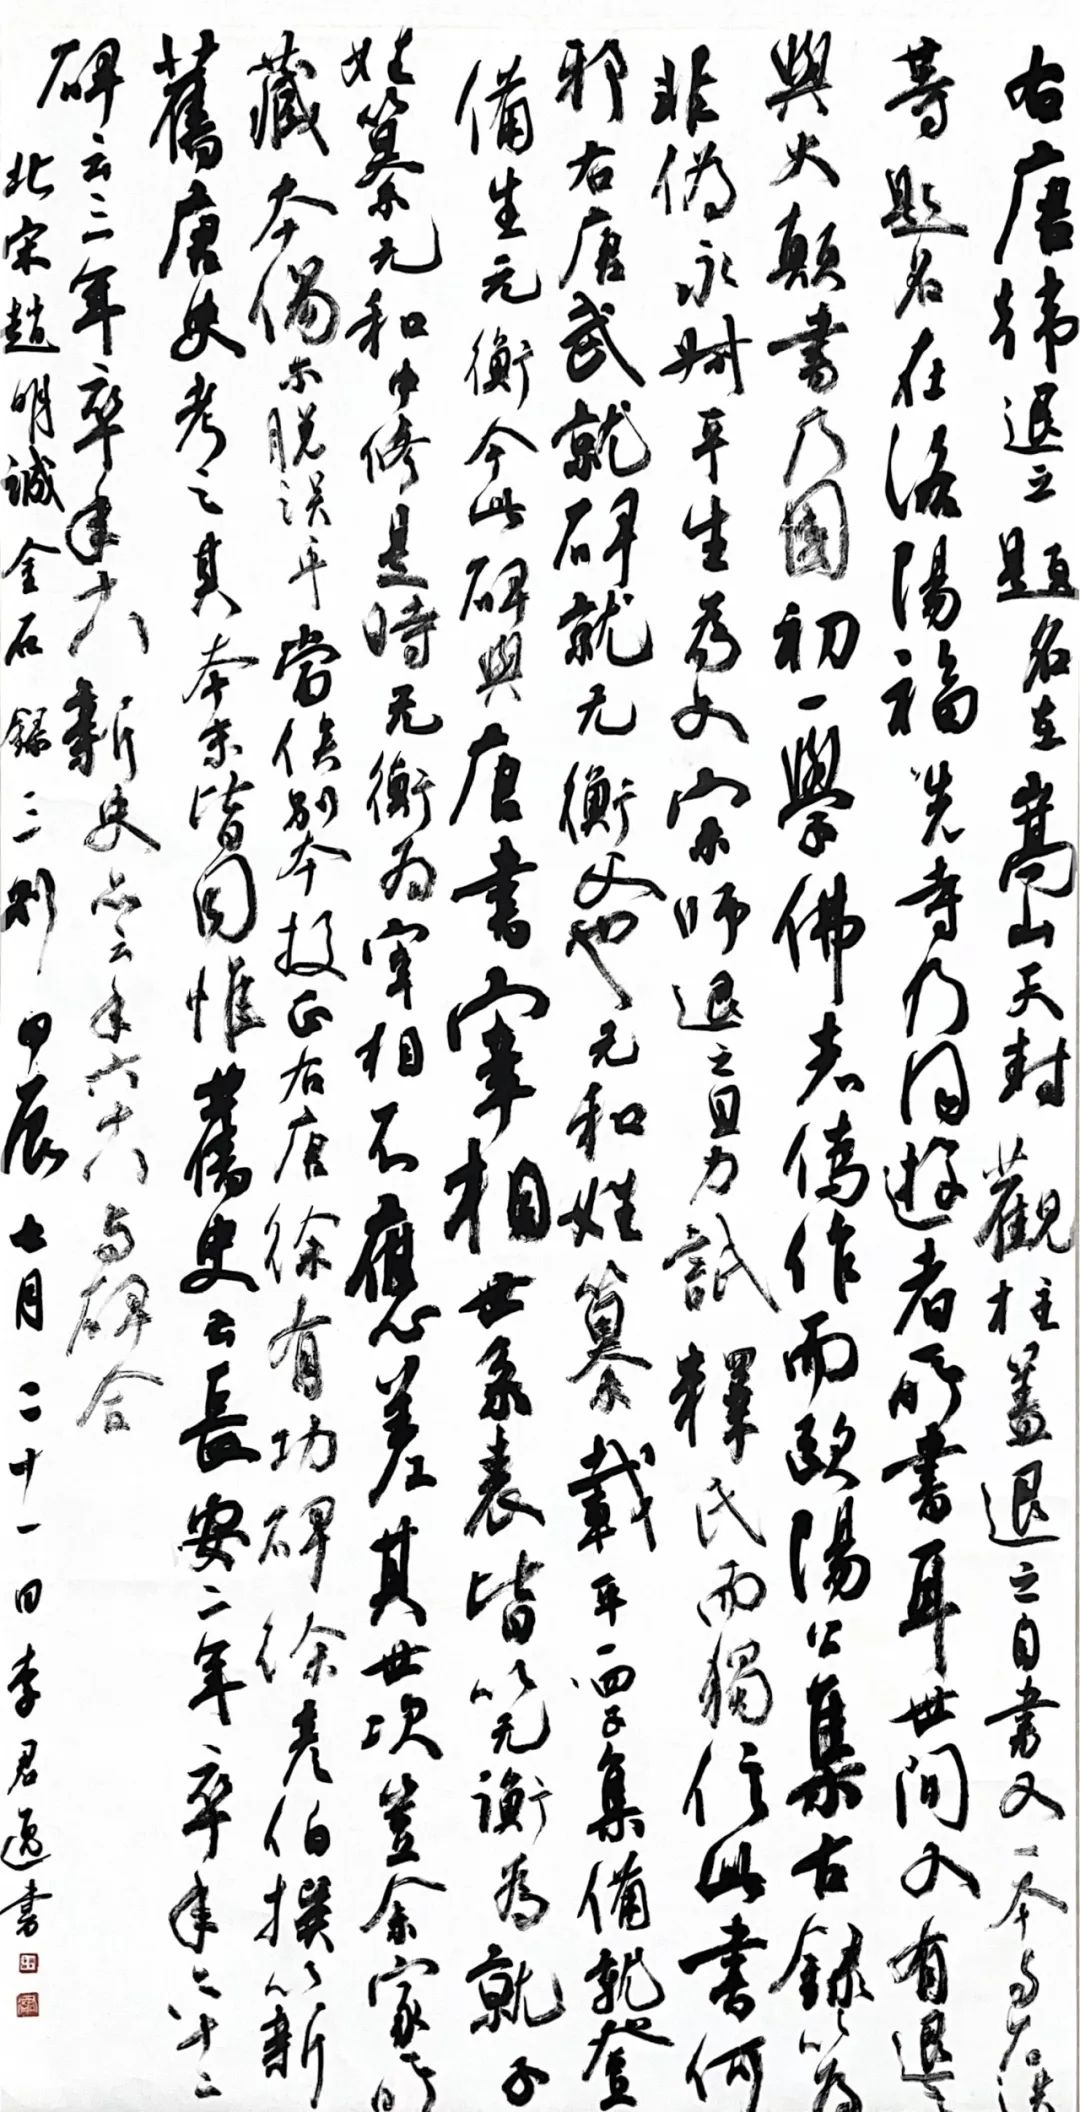 右唐韩退之題名在嵩山天封觀柱蓋退之自書又一本与石洪
等題名在洛陽福先寺乃同遊者所書耳世間又有退之
與大顛書乃國初一學佛者僞作而歐陽公集古錄以為
非偽永叔平生為文宗師退之且力詆釋氏而獨信此書何
邪右唐武就碑就元衡父也元和姓纂載平一四子集備就登
備生元衡今此碑與唐書宰相世系表皆以元衡為就子
姓纂元和中修是時元衡為宰相不應差其世次豈余家所
藏本偶尔脱误乎當俟别本校正右唐徐有功碑徐彦伯撰以新
舊唐史考之其本末皆同惟舊史云長安二年卒年六十二
碑云三年卒年六十八新史亦云年六十八与碑合
北宋趙明誠金石錄三則甲辰七月二十一日李君邁書